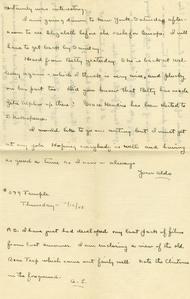 certainly was interesting.
I am going down to New York Saturday after-
noon to see Elizabeth before she sails for Europe; I will
have to get back by Sunday.
Heard from Betty yesterday. She is back at
again - which I think is very nice, and plucky
on her part too. Did you know that Betty has made
up there? Grace has been elected to
I would like to go on writing but I must get
at my job. Hoping everybody is well and having
as good a time as I am - always
Your
Temple
Thursday -
P.S. I have just had developed my last pack of films
from last summer. I am enclosing a view of the old
which came out fairly well. Note the
in the foreground.